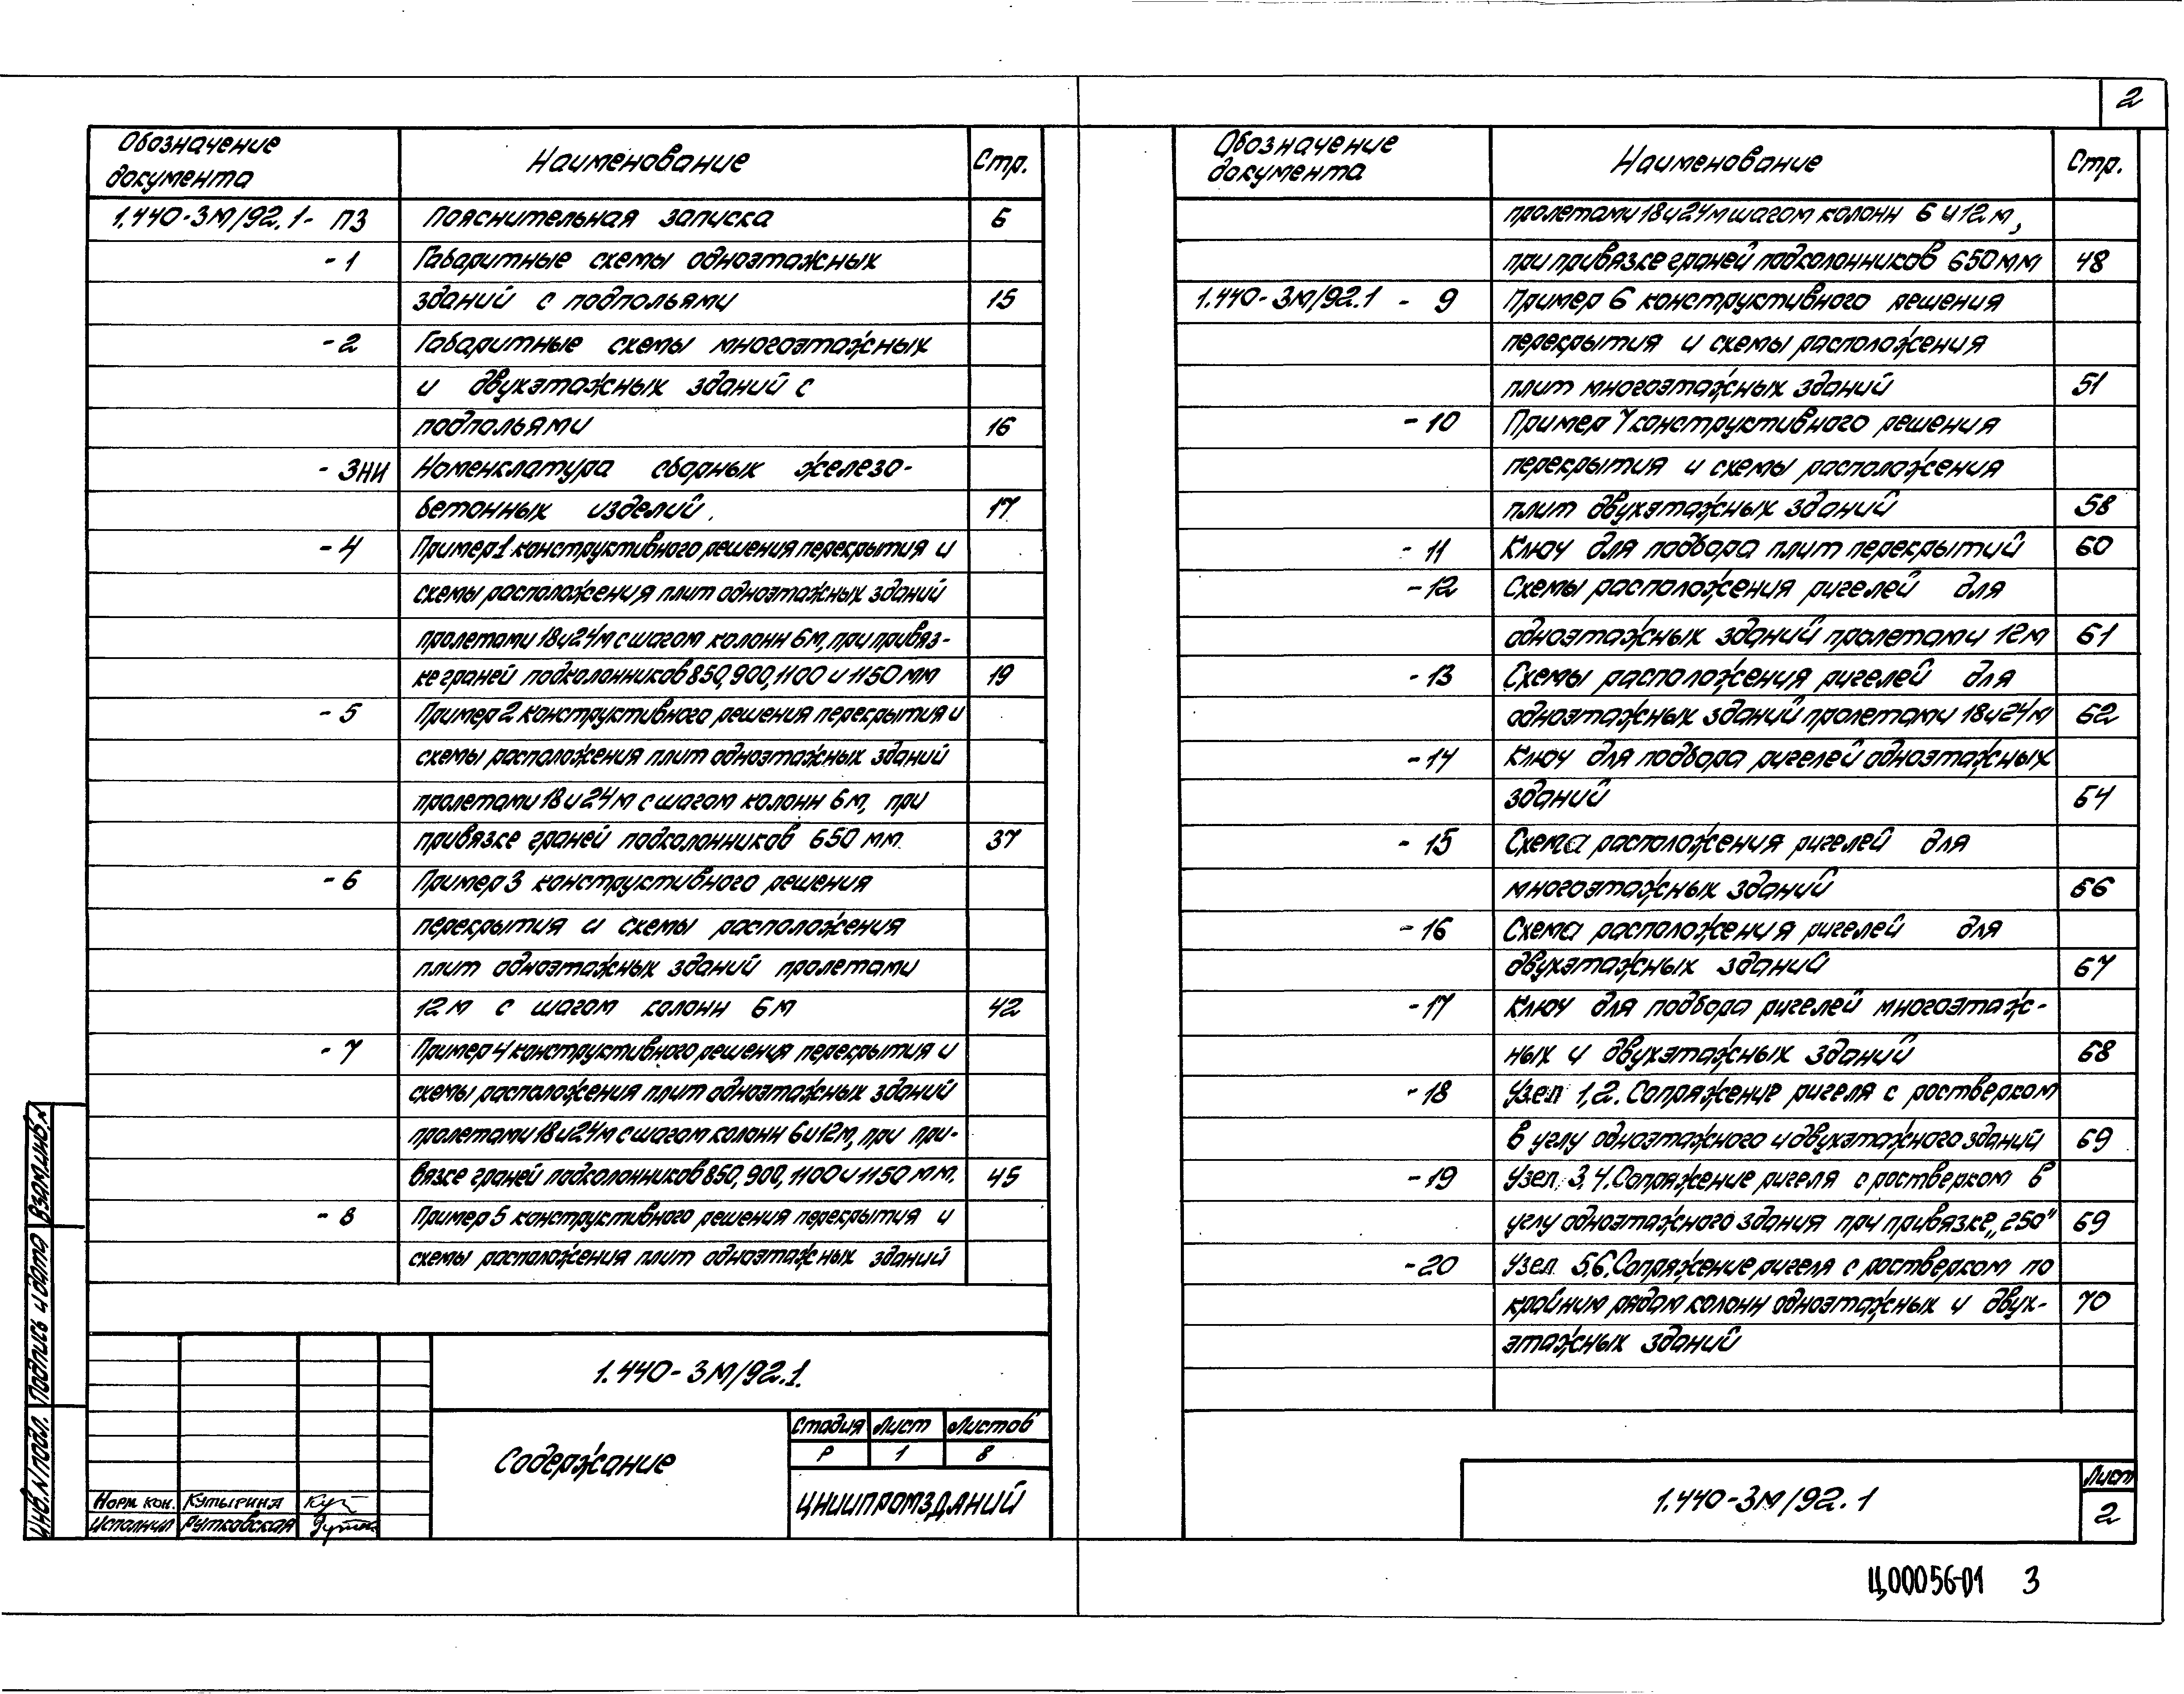 2
Обозначение документа Наименование Стр.
1.440-3М/92.1- ПЗ Пояснительная записка 6
-1 Габаритные схемы одноэтажных
зданий с подпольями 15
-2 Габаритные схемы многоэтажных
и двухэтажных зданий с
подпольями 16
-3НИ Номенклатура сборных железо-
бетонных изделий. 17
-4 Пример 1 конструктивного решения перекрытия и
схемы расположения плит одноэтажных зданий
пролетами 18 и 24м с шагом колонн 6м, при привяз-
ке граней подколонников 850, 900, 1100 и 1150 мм 19
-5 Пример 2 конструктивного решения перекрытия и
схемы расположения плит одноэтажных зданий
пролетами 18 и 24м с шагом колонн 6м, при
привязке граней подколонников 650 мм 37
-6 Пример 3 конструктивного решения
перекрытия и схемы расположения
плит одноэтажных зданий пролетами
12м с шагом колонн 6м 42
-7 Пример 4 конструктивного решения перекрытия и
схемы расположения плит одноэтажных зданий
пролетами 18 и 24м с шагом колонн 6 и 12м, при при-
вязке граней подколонников 850, 900, 1100 и 1150 мм. 45
-8 Пример 5 конструктивного решения перекрытия и
схемы расположения плит одноэтажных зданий
1.440-3М/92.1.
Содержание
Стадия Лист Листов
Р 1 8
ЦНИИПРОМЗДАНИЙ
Норм. кон. Кутырина
Исполнил Рутковская
Инв. N подл. Подпись и дата Взам. инв. N
Обозначение документа Наименование Стр.
пролетами 18 и 24м шагом колонн 6 и 12м,
при привязке граней подколонников 650мм 48
1.440-3М/92.1 - 9 Пример 6 конструктивного решения
перекрытия и схемы расположения
плит многоэтажных зданий 51
-10 Пример 7 конструктивного решения
перекрытия и схемы расположения
плит двухэтажных зданий 58
-11 Ключ для подбора плит перекрытий 60
-12 Схемы расположения ригелей для
одноэтажных зданий пролетами 12м 61
-13 Схемы расположения ригелей для
одноэтажных зданий пролетами 18 и 24м 62
-14 Ключ для подбора ригелей одноэтажных
зданий 64
-15 Схема расположения ригелей для
многоэтажных зданий 66
-16 Схема расположения ригелей для
двухэтажных зданий 67
-17 Ключ для подбора ригелей многоэтаж-
ных и двухэтажных зданий 68
-18 Узел 1,2. Сопряжение ригеля с ростверком
в углу одноэтажного и двухэтажного зданий 69
-19 Узел 3,4. Сопряжение ригеля с ростверком в
углу одноэтажного здания при привязке „250" 69
-20 Узел 5,6. Сопряжение ригеля с ростверком по
крайним рядам колонн одноэтажных и двух- 70
этажных зданий
1.440-3М/92.1
Лист
2
Ц00056-01 3